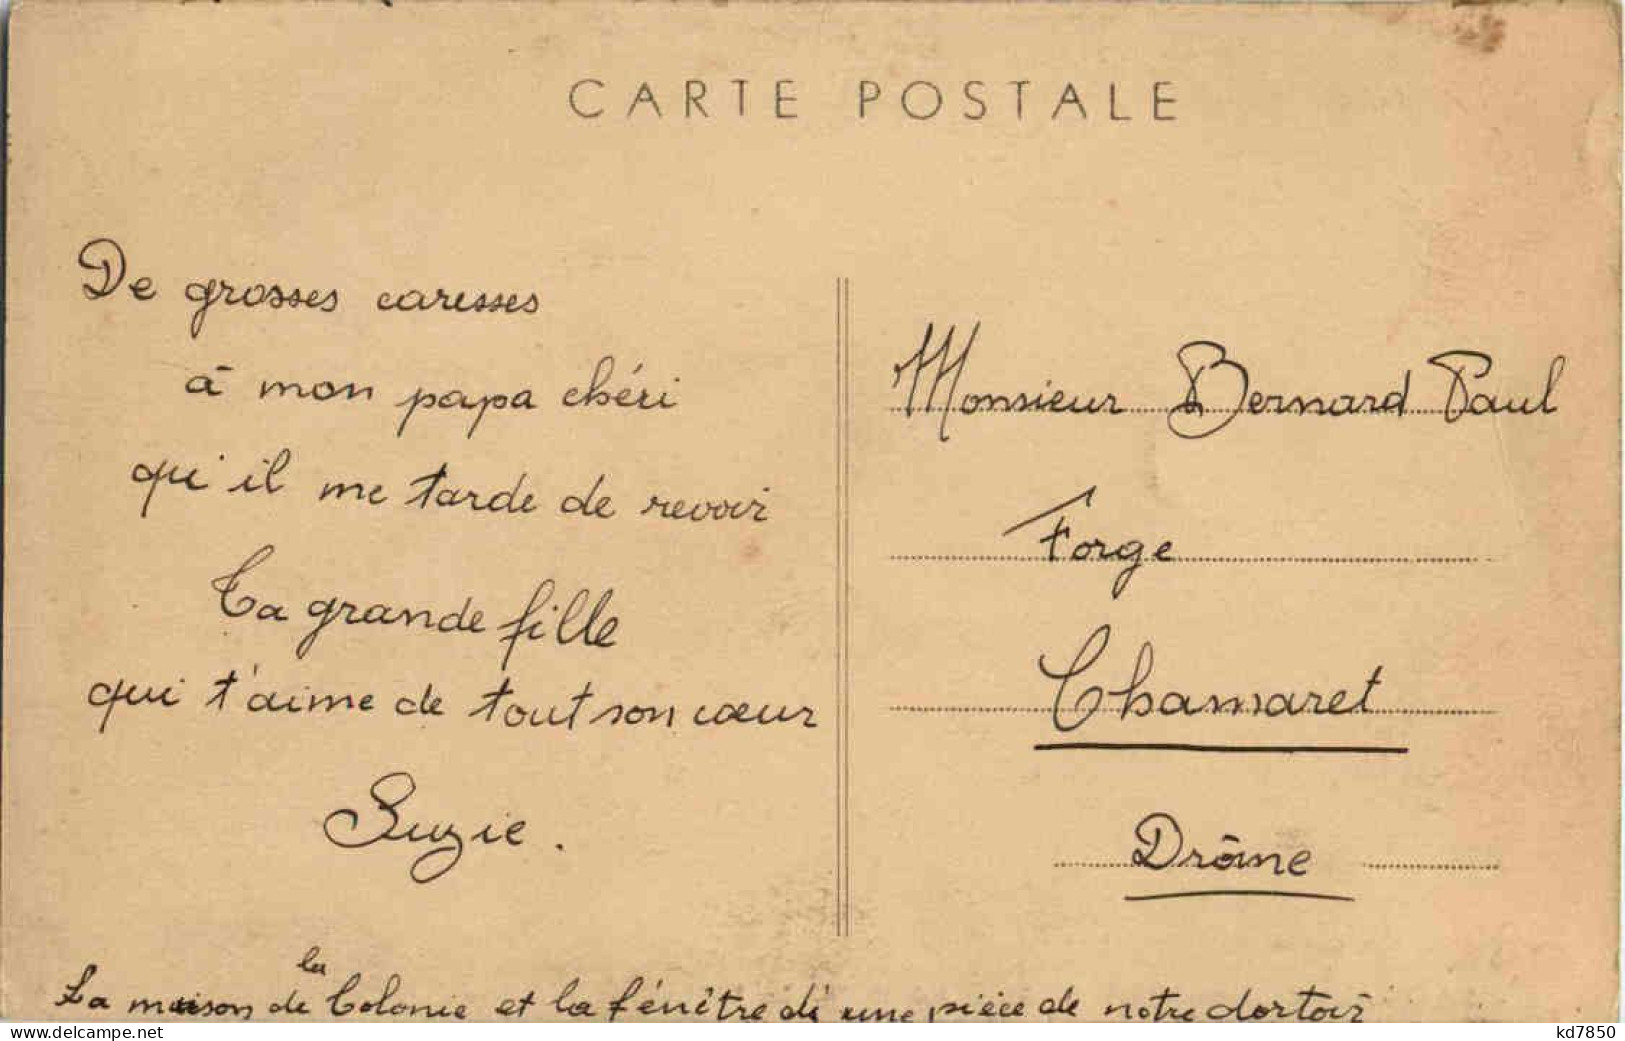 CARTE POSTALE
De grosses caresses
à mon papa chéri
qui il me tarde de revoir
Ta grande fille
qui t'aime de tout son cœur
Suzie.
Monsieur Bernard Paul
Forge
Chamaret
Drôme
la
La maison de Colonie et la fénêtre de une pièce de notre dortoir
www.delcampe.net
kd7850